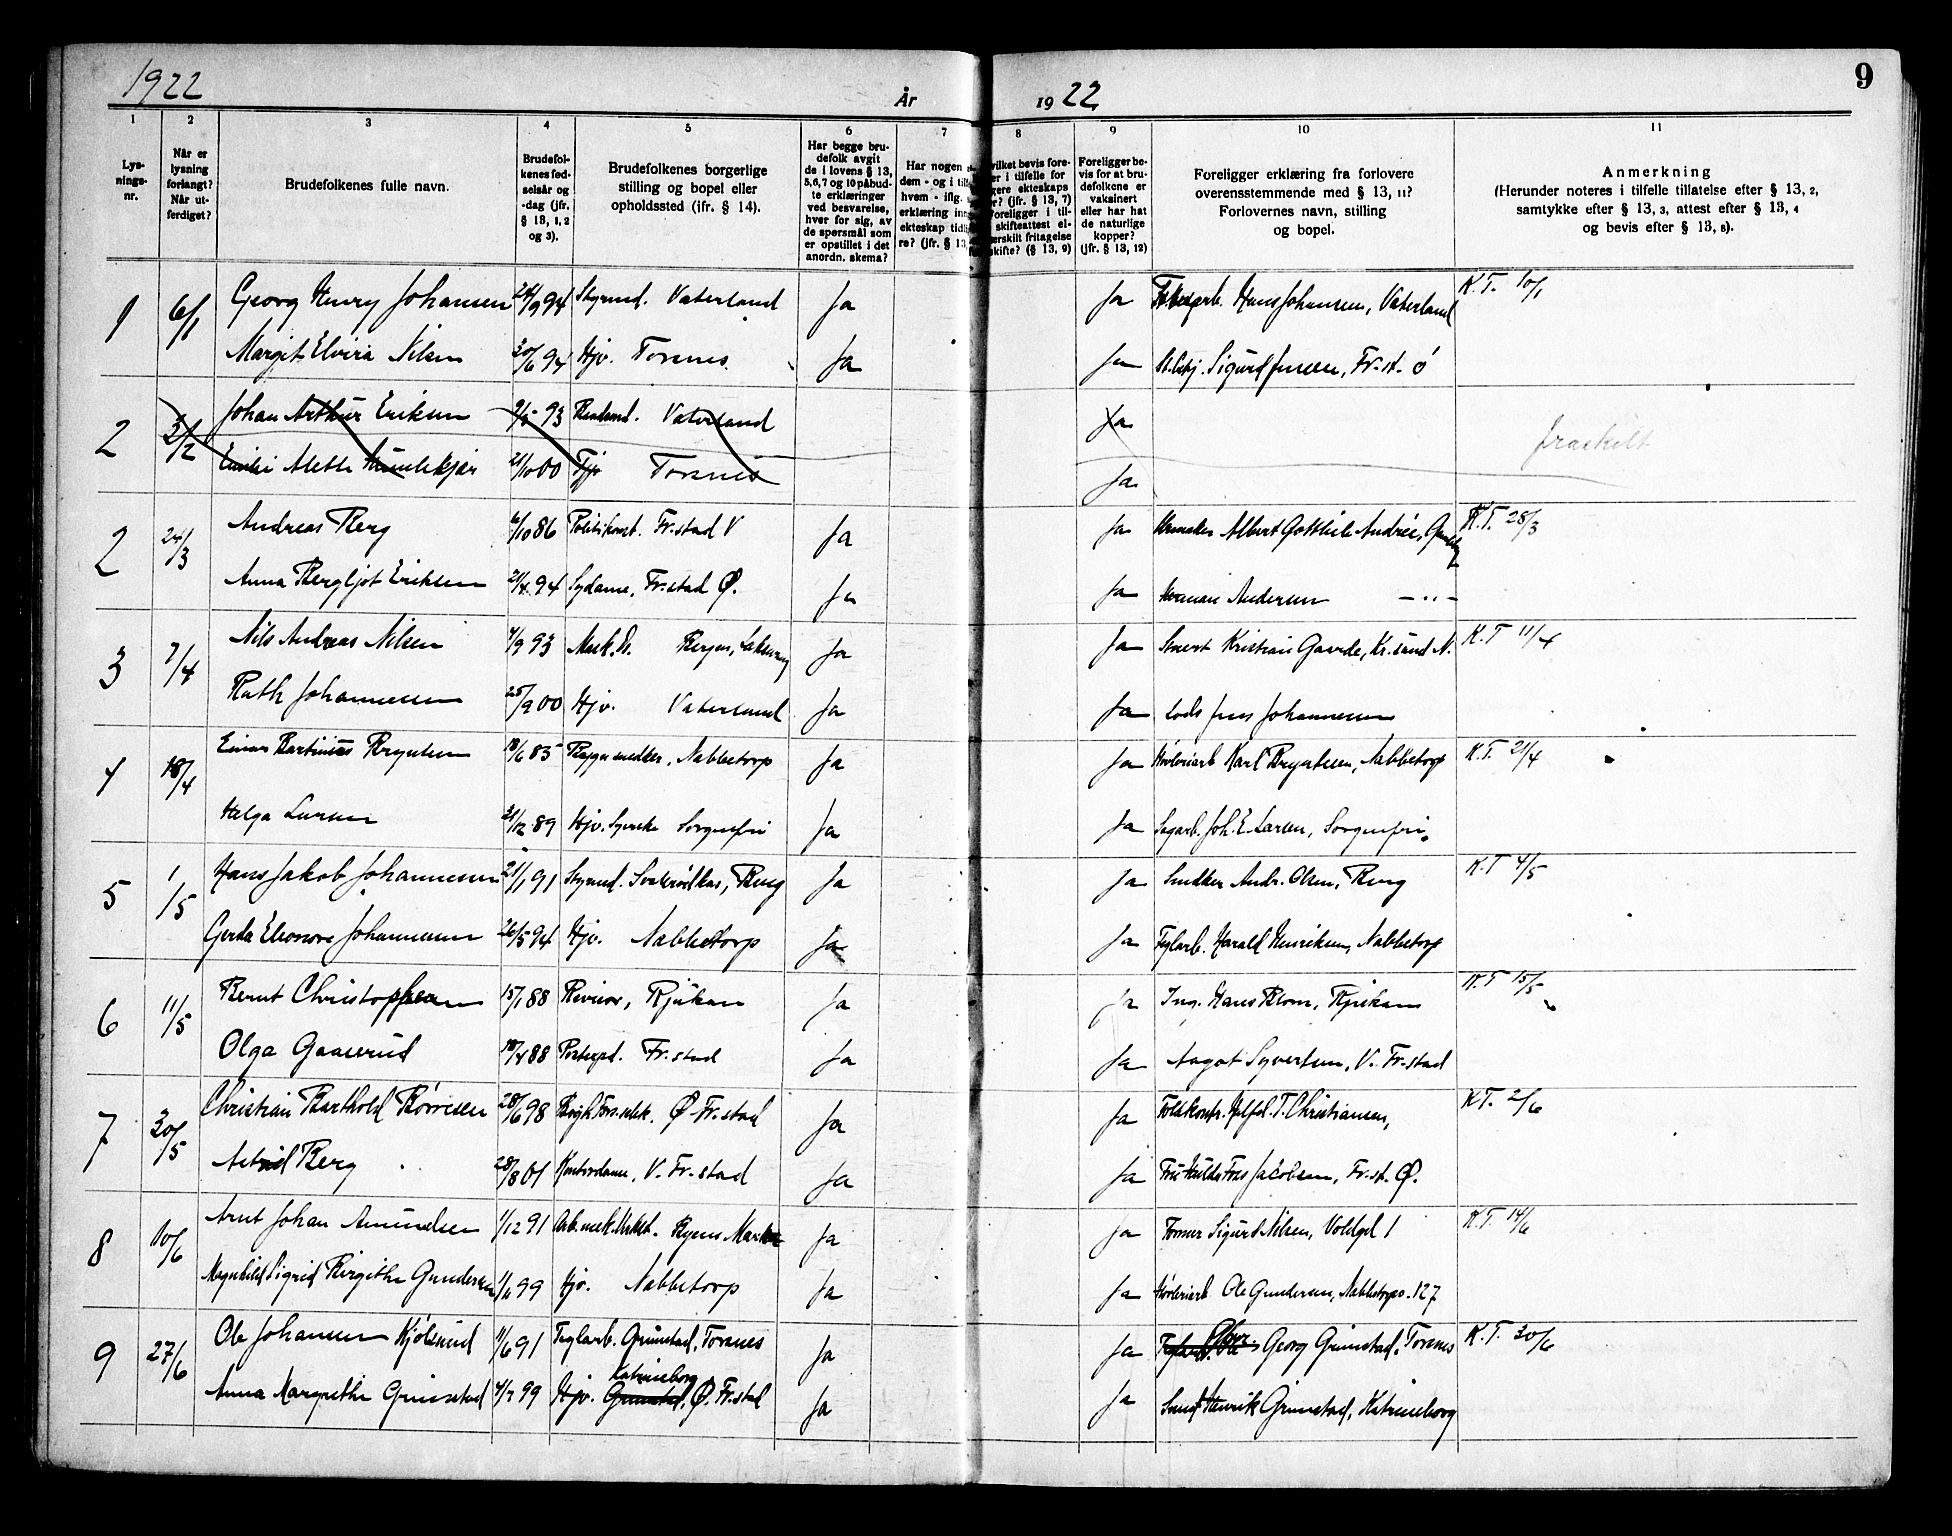 1922 År 1922 9
1 2 3 4 5 6 7 8 9 10 11
Lysnings-nr.
Når er lysning forlangt? Når utferdiget?
Brudefolkenes fulle navn.
Brudefolkenes fødselsår og -dag (jfr. § 13, 1, 2 og 3).
Brudefolkenes borgerlige stilling og bopel eller opholdssted (ifr. § 14).
Har begge brudefolk avgit de i lovens § 13, 5, 6, 7 og 10 påbudte erklæringer ved besvarelse, hver for sig, av de spørsmål som er opstillet i det anordn. skema?
Har nogen dem - og i hvem - iflg. erklæring ekteskap re? (jfr. § 13,
bevis fore- i tilfelle for ekteskaps (jfr. § 13, 7) Foreligger i til- skifteattest el- fritagelse skifte? (§ 13, 9)
Foreligger bevis for at brudefolkene er vaksinert eller har hat de naturlige kopper? (jfr. § 13, 12)
Foreligger erklæring fra forlovere overensstemmende med § 13, 11? Forlovernes navn, stilling og bopel.
Anmerkning (Herunder noteres i tilfelle tillatelse efter § 13, 2, samtykke efter § 13, 3, attest efter § 13, 4 og bevis efter § 13, 8).
1 6/1 Georg Henry Johansen 24/9 94 Styrmd. Vaterland Ja Ja Hans Johansen, Vaterland K.T. 10/1
Margit Elvira Nilsen 30/6 94 Hjv. Torsnes. Ja Ja Sigurd Jensen, Fr-st. Ø
2 3/2 Johan Arthur Eriksen 93 Vaterland Ja fraskilt
Aleth 21/10 00 Torsnes Ja
2 24/3 Andreas Berg 6/10 86 Politikonst. Fr.stad V Ja Ja Albert Gottlieb Andrée, K.T. 28/3
Anna Bergljot Eriksen 21/4 94 Sydame, Fr.stad Ø. Ja Ja Andersen — " —
3 7/4 Nils Andreas Nilsen 4/9 93 Bergen, Ja Ja Stuert Kristian Gaarde, Kr.sund N. K.T 11/4
Ruth Johannessen 25/9 00 Hjv. Vaterland Ja Ja Lods Jens Johannessen
4 18/4 Einar Martinius Bryntesen 18/6 85 Nabbetorp Ja Ja Høvleriarb Karl Bryntesen, Nabbetorp K.T. 21/4
Helga Larsen 31/12 89 Hjv. Syerske Sorgenfri Ja Ja Sagarb. Joh. E. Larsen, Sorgenfri.
5 1/5 Hans Jakob Johannessen 21/1 91 Styrmd. Ja Ja Snedker Andr. Olsen, K.T 4/5
Gerda Eleonore Johannessen 26/5 94 Hjv. Nabbetorp Ja Ja Teglarb. Harald Henriksen, Nabbetorp
6 11/5 Bernt Christophersen 15/1 88 Revisor, Rjukan Ja Ja Ing. Hans Blom, Rjukan K.T 15/5
Olga Gaaserud 18/4 88 Postexpd. Fr.stad Ja Ja Aagot Syvertsen, V. Fr-stad
7 30/5 Christian Barthold Børresen 28/6 98 Ø. Fr.stad Ja Ja Christiansen, K.T. 2/6
Astrid Berg 28/8 01 Kontordame, V. Fr-stad Ja Ja Fru Hulda Jacobsen, Fr.st. Ø.
8 10/6 Arnt Johan Amundsen 1/12 91 Ja Ja Former Sigurd Nilsen, Voldgd 1 K.T. 14/6
Magnhild Sigrid Birgithe Gundersen 1/11 99 Hjv. Nabbetorp Ja Ja Høvleriarb Ole Gundersen, Nabbetorp. 127
9 27/6 Ole Johansen Kjölsrud 11/6 91 Teglarb. Grimstad, Torsnes Ja Ja Georg Grimstad, Torsnes K.T. 30/6
Anna Margrethe Grimstad 4/7 99 Hjv. Grimstad, Katrineborg Ø. Fr.stad Ja Ja Henrik Grimstad, Katrineborg